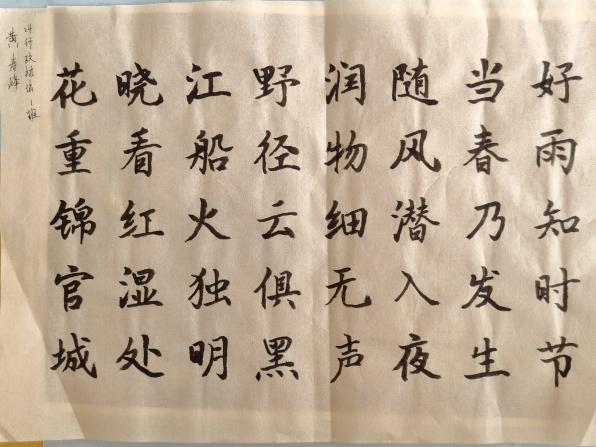 好雨知时节
当春乃发生
随风潜入夜
润物细无声
野径云俱黑
江船火独明
晓看红湿处
花重锦官城